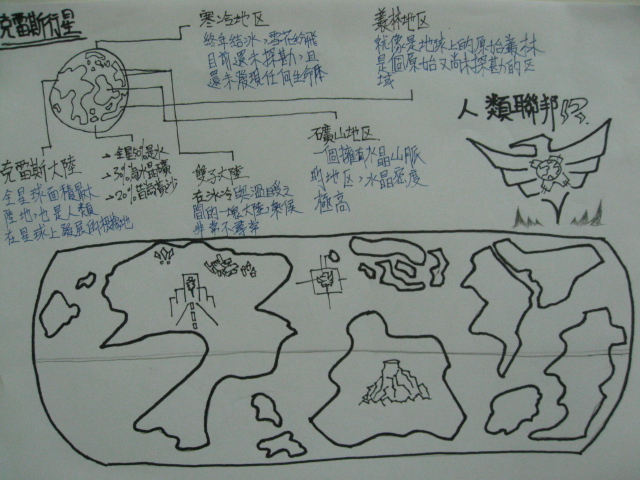 克雷斯行星
寒冷地区
終年結冰,雪花紛飛
目前還未探勘,且
還未發現任何生命体
叢林地区
就像是地球上的原始叢林
是個原始又尚未探勘的区
域
人類聯邦
礦山地区
一個擁有水晶山脈
的地區,水晶密度
極高
克雷斯大陸
全星球面積最大
陸地,也是人類
在星球上發展的根據地
雙子大陸
在冰冷與溫暖之
間的一塊大陸,氣候
非常不尋常